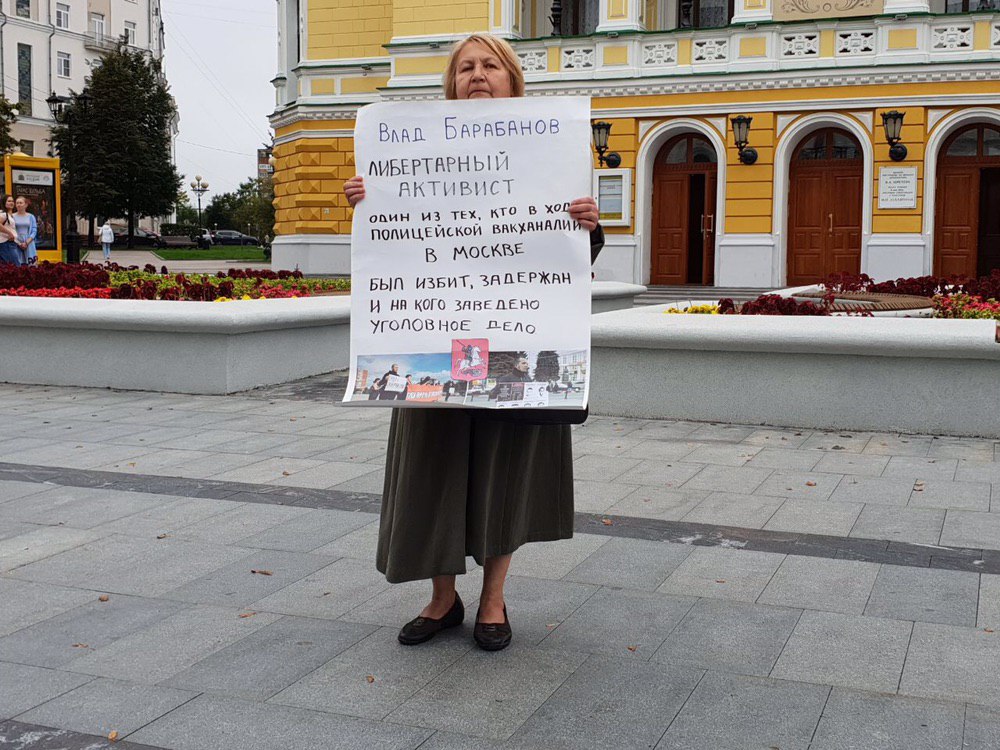 Влад Барабанов
либертарный
активист
один из тех, кто в ходе
полицейской вакханалии
в Москве
был избит, задержан
и на кого заведено
уголовное дело